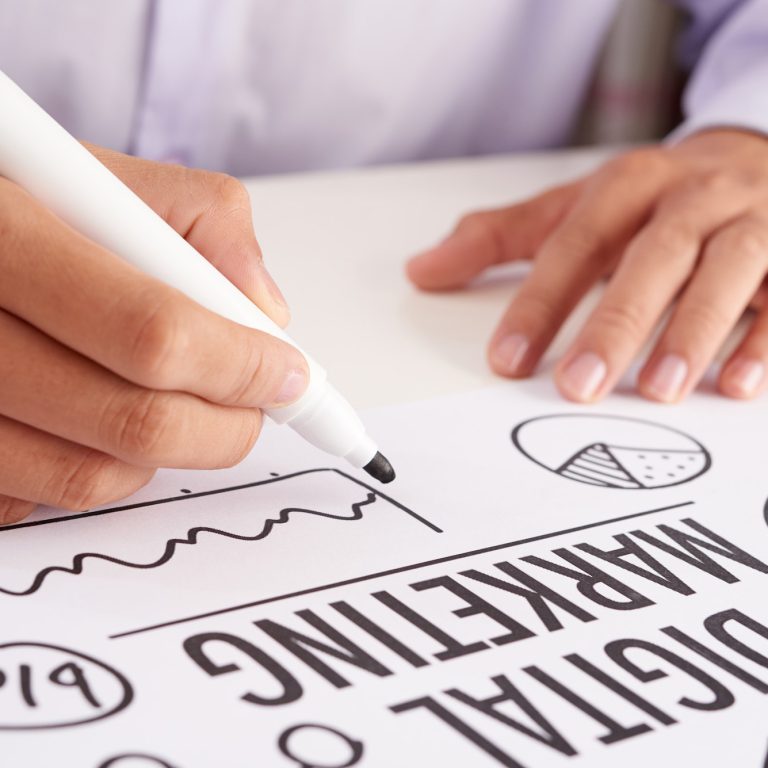 DIGITAL
MARKETING